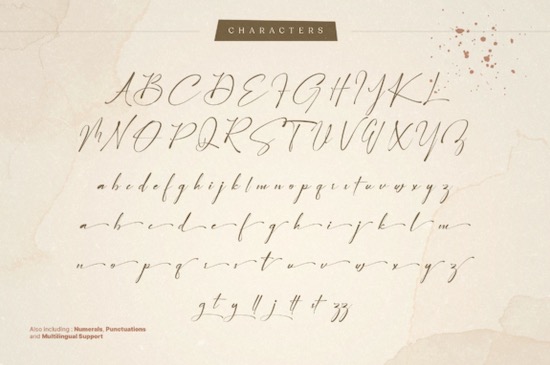 CHARACTERS
A B C D E F G H I J K L
M N O P Q R S T U V W X Y Z
a b c d e f g h i j k l m n o p q r s t u v w x y z
a b c d e f g h i j k l m
n o p q r s t u v w x y z
g t y ll j tt st zz
Also Including : Numerals, Punctuations
and Multilingual Support